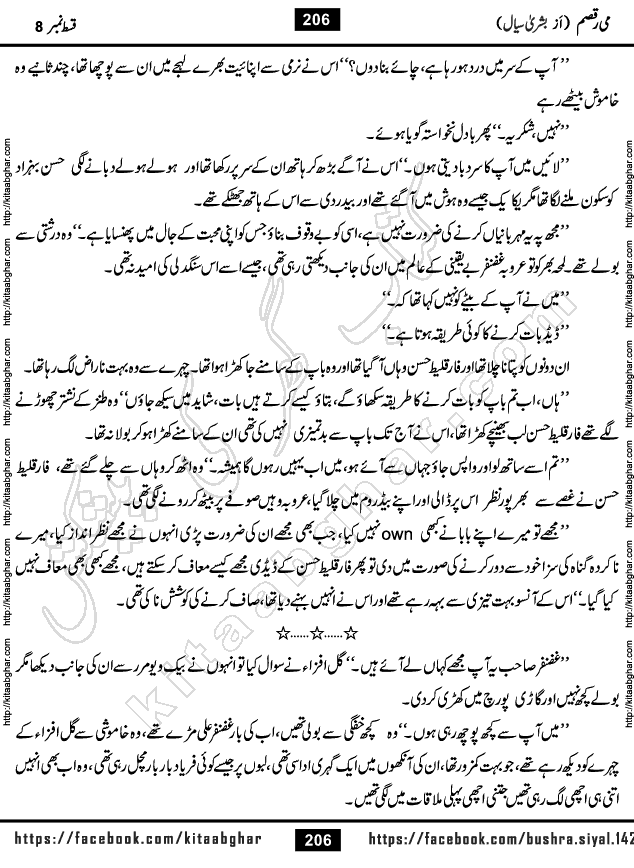 می رقصم (از بشریٰ سیال)
206
قسط نمبر 8
’’ آپ کے سر میں درد ہو رہا ہے، چائے بنا دوں؟‘‘ اس نے نرمی سے اپنائیت بھرے لہجے میں ان سے پوچھا تھا، چند ثانیے وہ
خاموش بیٹھے رہے
’’نہیں، شکریہ۔‘‘ پھر بادل نخواستہ گویا ہوئے ۔
’’لائیں میں آپ کا سر دبا دیتی ہوں۔‘‘ اس نے آگے بڑھ کر ہاتھ ان کے سر پر رکھا تھا اور ہولے ہولے دبانے لگی حسن بہزاد
کو سکون ملنے لگا تھا مگر یکا یک جیسے وہ ہوش میں آ گئے تھے اور بیدردی سے اس کے ہاتھ جھٹکے تھے۔
’’مجھ پہ یہ مہربانیاں کرنے کی ضرورت نہیں ہے، اسی کو بے وقوف بناؤ جس کو اپنی محبت کے جال میں پھنسایا ہے۔‘‘ وہ درشتی سے
بولے تھے۔ لمحہ بھر کو تو عروبہ غضنفر بے یقینی کے عالم میں ان کی جانب دیکھتی رہی تھی، جیسے اسے اس سنگدلی کی امید نہ تھی۔
’’میں نے آپ کے بیٹے کو نہیں کہا تھا کہ۔‘‘
’’ڈیڈ بات کرنے کا کوئی طریقہ ہوتا ہے۔‘‘
ان دونوں کو پتا نا چلا تھا اور فارقلیط حسن وہاں آ گیا تھا اور وہ باپ کے سامنے جا کھڑا ہوا تھا۔ چہرے سے وہ بہت ناراض لگ رہا تھا۔
’’ہاں، اب تم باپ کو بات کرنے کا طریقہ سکھاؤ گے، بتاؤ کیسے کرتے ہیں بات، شاید میں سیکھ جاؤں‘‘ وہ طنز کے نشتر چھوڑنے
لگے تھے فارقلیط حسن لب بھینچے کھڑا تھا، اس نے آج تک باپ سے بدتمیزی نہیں کی تھی ان کے سامنے کھڑا ہو کر بولا نہ تھا۔
’’تم اسے ساتھ لو اور واپس جاؤ جہاں سے آئے ہو، میں اب یہیں رہوں گا ہمیشہ۔‘‘ وہ اٹھ کر وہاں سے چلے گئے تھے، فارقلیط
حسن نے غصے سے بھر پور نظر اس پر ڈالی اور اپنے بیڈ روم میں چلا گیا، عروبہ وہیں صوفے پر بیٹھ کر رونے لگی تھی۔
’’مجھے تو میرے اپنے بابا نے کبھی own نہیں کیا، جب بھی مجھے ان کی ضرورت پڑی انہوں نے مجھے نظر انداز کیا، میرے
نا کردہ گناہ کی سزا خود سے دور کرنے کی صورت میں دی تو پھر فارقلیط حسن کے ڈیڈی مجھے کیسے معاف کر سکتے ہیں، مجھے کبھی بھی معاف نہیں
کیا گیا۔‘‘ اس کے آنسو بہت تیزی سے بہہ رہے تھے اور اس نے انہیں بہنے دیا تھا، صاف کرنے کی کوشش نا کی تھی۔
☆......☆......☆
’’غضنفر صاحب یہ آپ مجھے کہاں لے آئے ہیں۔‘‘ گل افزاء نے سوال کیا تو انہوں نے بیک ویو مرر سے ان کی جانب دیکھا مگر
بولے کچھ نہیں اور گاڑی پورچ میں کھڑی کر دی۔
’’میں آپ سے کچھ پوچھ رہی ہوں۔‘‘ وہ کچھ خفگی سے بولی تھیں، اب کی بار غضنفر علی مڑے تھے، وہ خاموشی سے گل افزاء کے
چہرے کو دیکھ رہے تھے، جو بہت کمزور تھا، ان کی آنکھوں میں ایک گہری اداسی تھی، لبوں پر جیسے کوئی فریاد بار بار مچل رہی تھی، وہ اب بھی انہیں
اتنی ہی اچھی لگ رہی تھیں جتنی اچھی پہلی ملاقات میں لگی تھیں۔
http://kitaabghar.com
http://kitaabghar.com
http://kitaabghar.com
http://kitaabghar.com
http://kitaabghar.com
http://kitaabghar.com
http://kitaabghar.com
http://kitaabghar.com
http://kitaabghar.com
http://kitaabghar.com
http://kitaabghar.com
http://kitaabghar.com
کتاب گھر کی پیشکش
kitaabghar.com
https://facebook.com/kitaabghar
206
https://facebook.com/bushra.siyal.142